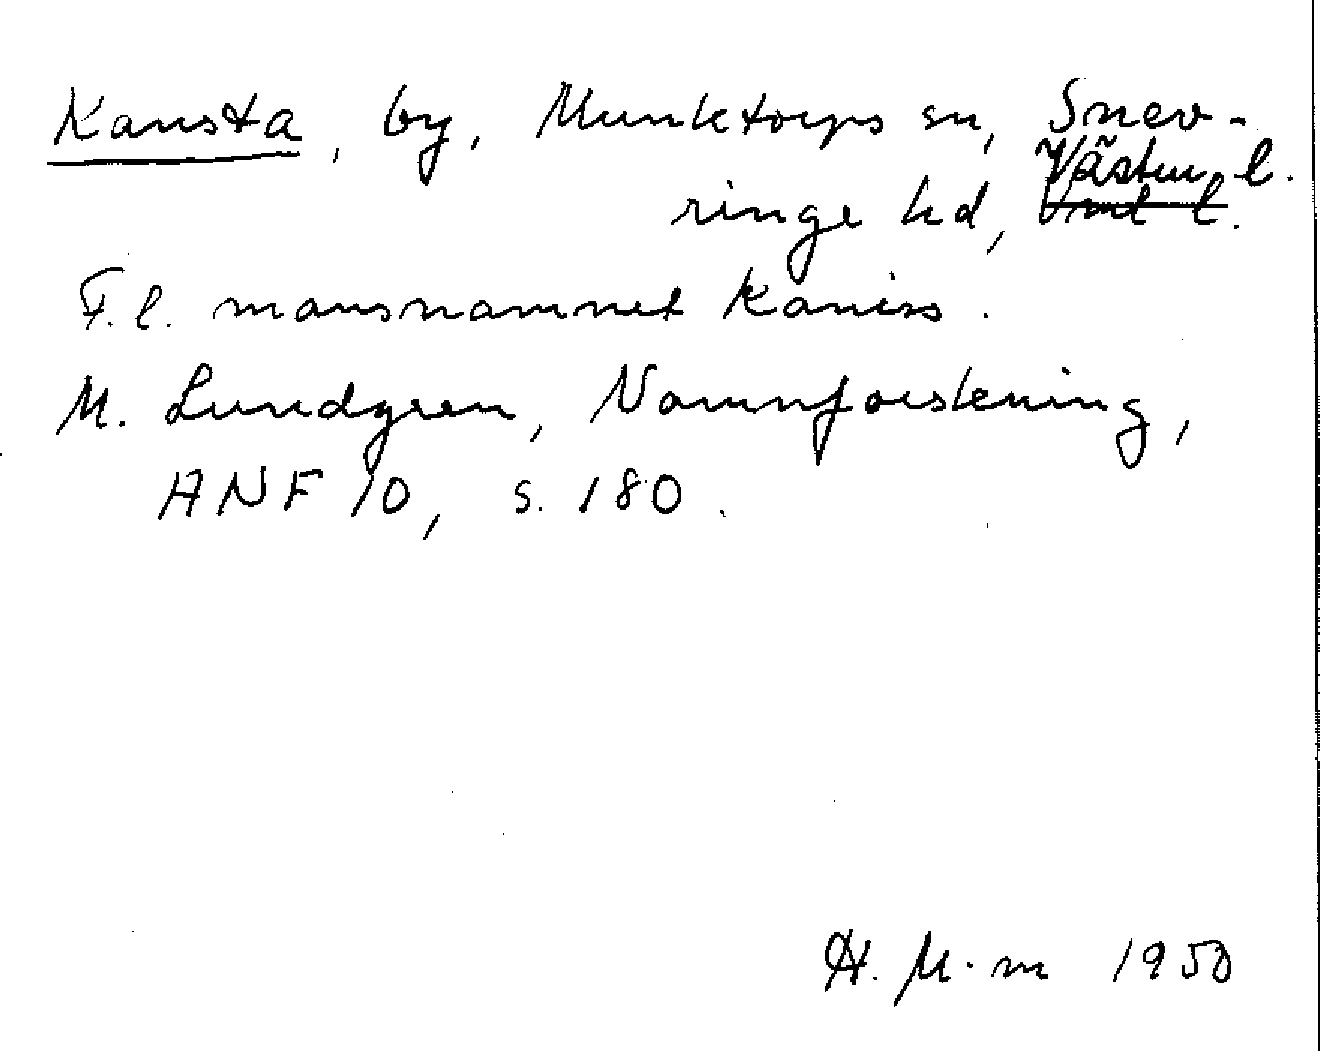 Kansta, by, Munktorps sn, Snev-
Västm. l.
ringe hd, Vml l.
F.l. mansnamnet Kaniss.
M. Lundgren, Namnforskning,
ANF 10, s. 180.
H. M-m 1950